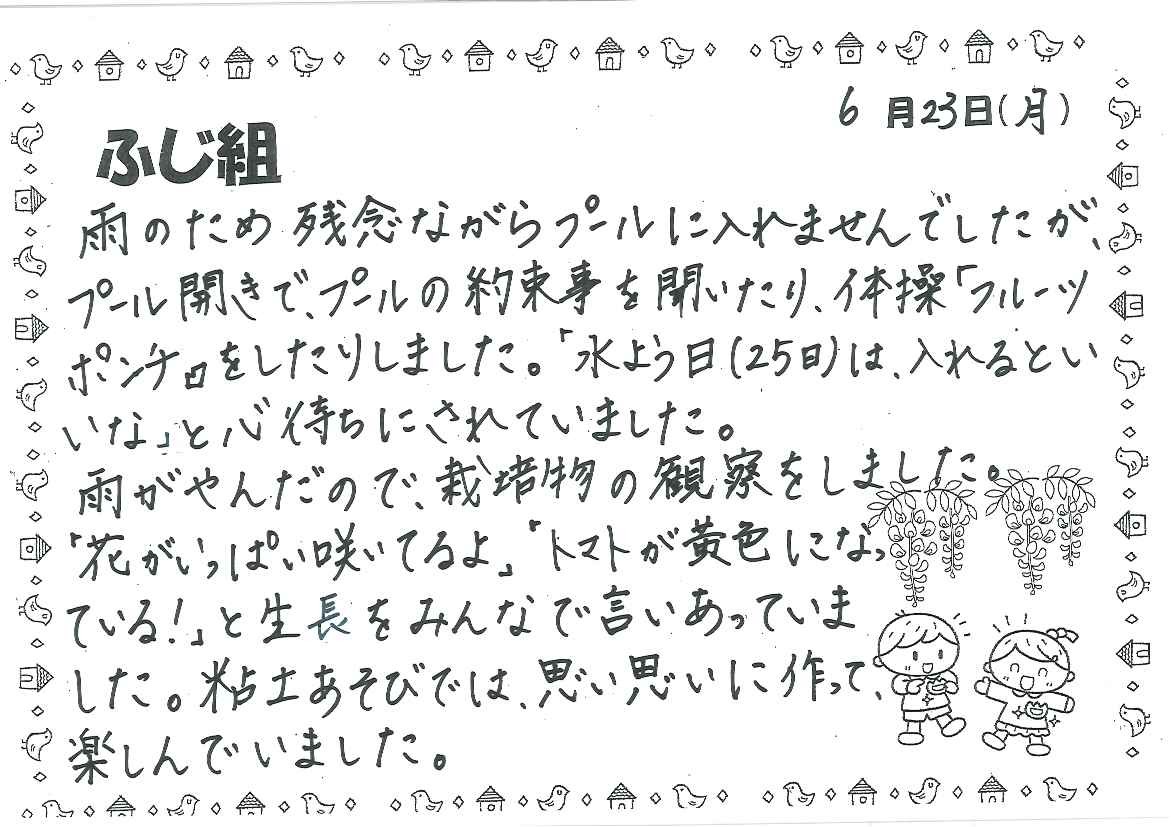 6月23日(月)
ふじ組
雨のため残念ながらプールに入れませんでしたが、
プール開きで、プールの約束事を聞いたり、体操「フルーツ
ポンチ」をしたりしました。「水よう日(25日)は、入れるとい
いな」と心待ちにされていました。
雨がやんだので、栽培物の観察をしました。
「花がいっぱい咲いてるよ」「トマトが黄色になっ
ている!」と生長をみんなで言いあっていま
した。粘土あそびでは、思い思いに作って、
楽しんでいました。